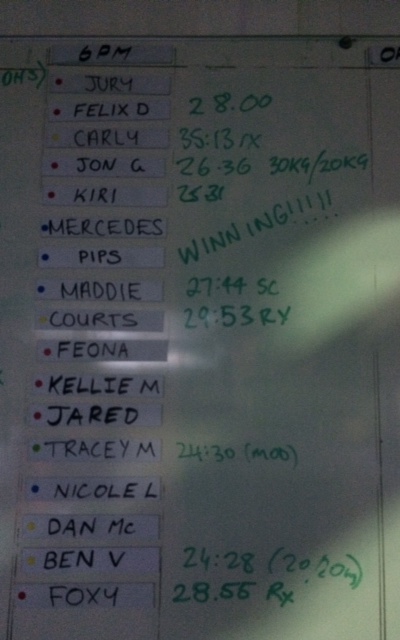 6PM
JURY
FELIX D 28.00
CARLY 35:13 rx
JON G 26.36 30KG/20KG
KIRI 25 31
MERCEDES
PIPS WINNING!!!!!
MADDIE 27:44 SC
COURTS 29:53 RX
FEONA
KELLIE M
JARED
TRACEY M 24:30 (MOD)
NICOLE L
DAN Mc
BEN V 24:28
FOXY 28.55 Rx